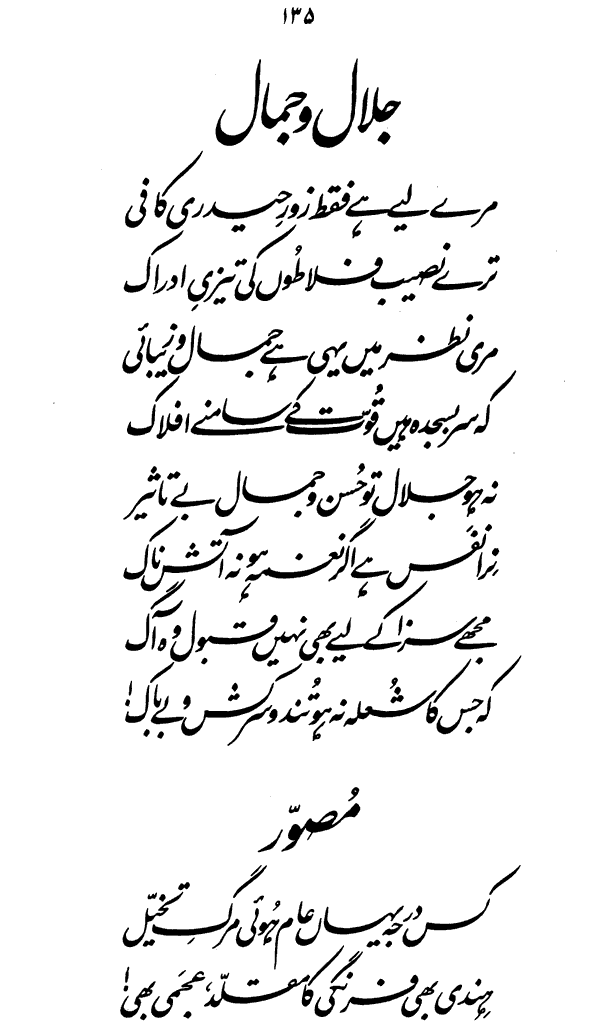 ۱۳۵
جلال و جمال
مرے لیے ہے فقط زورِ حیدری کافی
ترے نصیب فلاطُوں کی تیزیِ ادراک
مری نظر میں یہی ہے جمال و زیبائی
کہ سر بسجدہ ہیں قُوّت کے سامنے افلاک
نہ ہو جلال تو حُسن و جمال بے تاثیر
نِرا نفَس ہے اگر نغمہ ہو نہ آتش ناک
مجھے سزا کے لیے بھی نہیں قبول وہ آگ
کہ جس کا شُعلہ نہ ہو تُند و سرکش و بے باک!
مُصوّر
کس درجہ یہاں عام ہُوئی مرگِ تخیّل
ہِندی بھی فرنگی کا مقلّد، عجمَی بھی!